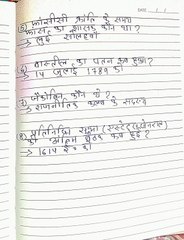 DATE / /
(5) फ्रांसीसी क्रांति के समय
फ्रांस का शासक कौन था ?
→ लुई सोलहवाँ
(6) बास्तील का पतन कब हुआ ?
→ 14 जुलाई 1789 को
(7) जैकोबिन कौन थे ?
→ राजनीतिक क्लब के सदस्य
(8) प्रतिनिधि सभा (एस्टेट जेनरल)
की अंतिम बैठक कब हुई ?
→ 1614 ई॰ में